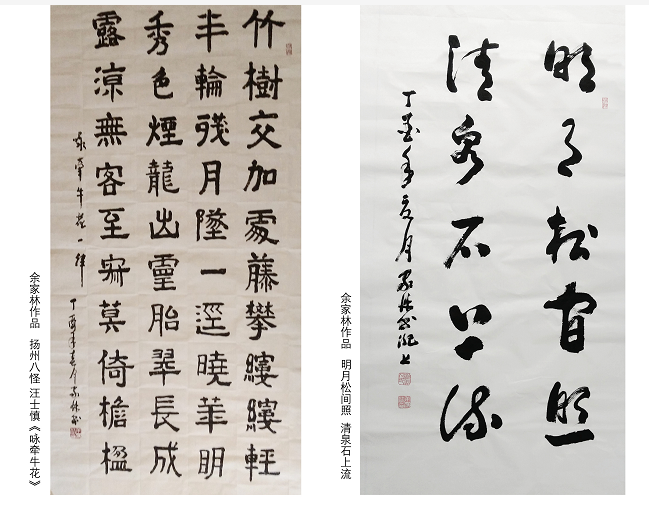 竹樹交加處藤攀縷縷輕
半輪殘月墜一逕曉華明
秀色煙龍出靈胎翠長成
露涼無客至寂莫倚檐楹
咏牽牛花一律 丁酉年春月家林書
余家林作品 扬州八怪 汪士慎《咏牵牛花》
明月松間照
清泉石上流
丁酉年夏月家林書沪上
余家林作品 明月松间照 清泉石上流